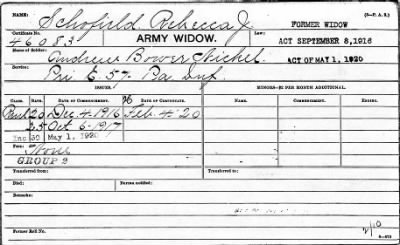 (3-P. A. 3.)
Schofield Rebecca J. FORMER WIDOW
Name.
Certificate No. ARMY WIDOW. ACT SEPTEMBER 8, 1916
46083
Name of Soldier: ACT OF MAY 1, 1920
Andrew Bower Nickel
Service:
Pri E. 57 Pa Inf
ISSUES. MINORS—$2 PER MONTH ADDITIONAL.
CLASS. RATE. DATE OF COMMENCEMENT. DATE OF CERTIFICATE. NAME. COMMENCEMENT. ENDING.
20 Dec. 4-1916 Feb. 4-'20
25 Oct 6-1917
Inc 30 May 1, 1920
Fees:
None
GROUP 2
Transferred from Transferred to
Died: Bureau notified:
Remarks:
Former Roll No.